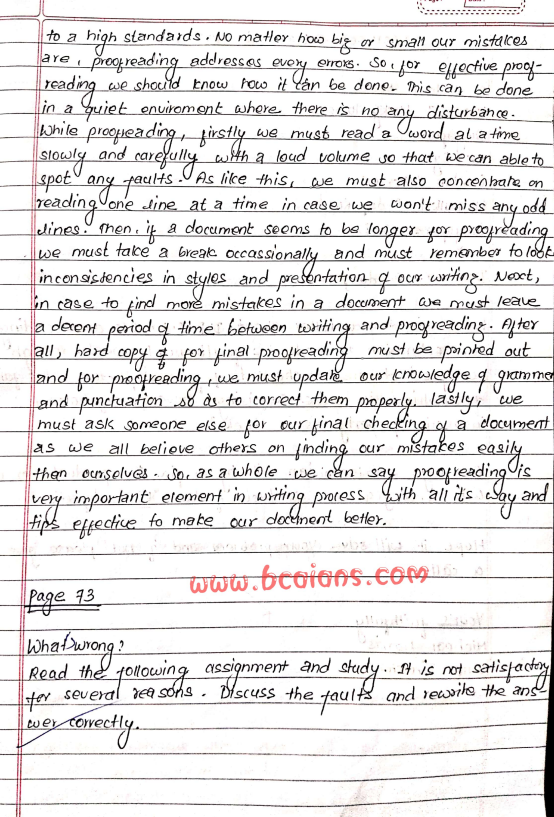 to a high standards. No matter how big or small our mistakes
are, proofreading addresses every errors. So, for effective proof-
reading we should know how it can be done. This can be done
in a quiet enviroment where there is no any disturbance.
While proofreading, firstly we must read a word at a time
slowly and carefully with a loud volume so that we can able to
spot any faults. As like this, we must also concentrate on
reading one line at a time in case we won't miss any odd
lines. Then, if a document seems to be longer for proofreading
we must take a break occassionally and must remember to look
inconsistencies in styles and presentation of our writing. Next,
in case to find more mistakes in a document we must leave
a decent period of time between writing and proofreading. After
all, hard copy of for final proofreading must be printed out
and for proofreading, we must update our knowledge of gramma
and punctuation so as to correct them properly. lastly, we
must ask someone else for our final checking of a document
as we all believe others on finding our mistakes easily
then ourselves. So, as a whole we can say proofreading is
very important element in writing process with all it's way and
tips effective to make our document better.
www.bcaians.com
Page 73
What's wrong?
Read the following assignment and study. It is not satisfactory
for several reasons. Discuss the faults and rewrite the ans-
wer correctly.